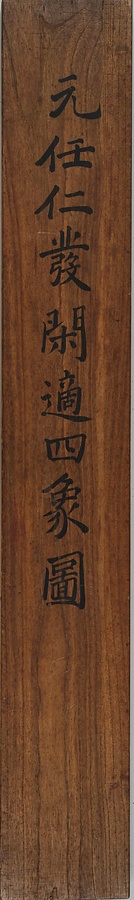 元任仁發閑適四象圖